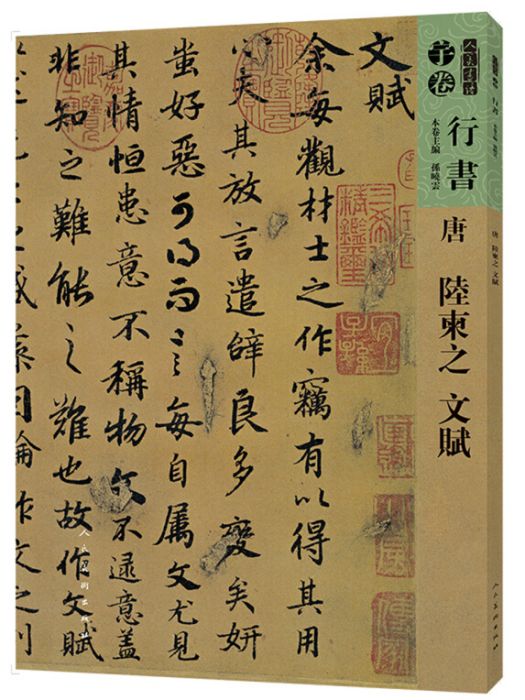 文賦
余每觀材士之作竊有以得其用
心夫其放言遣辭良多變矣妍
蚩好惡可得而言每自屬文尤見
其情恒患意不稱物文不逮意蓋
非知之難能之難也故作文賦
人民美術出版社
字卷
行書
本卷主編 孫曉雲
唐 陸柬之 文賦
行書
唐 陸柬之 文賦
人民美術出版社